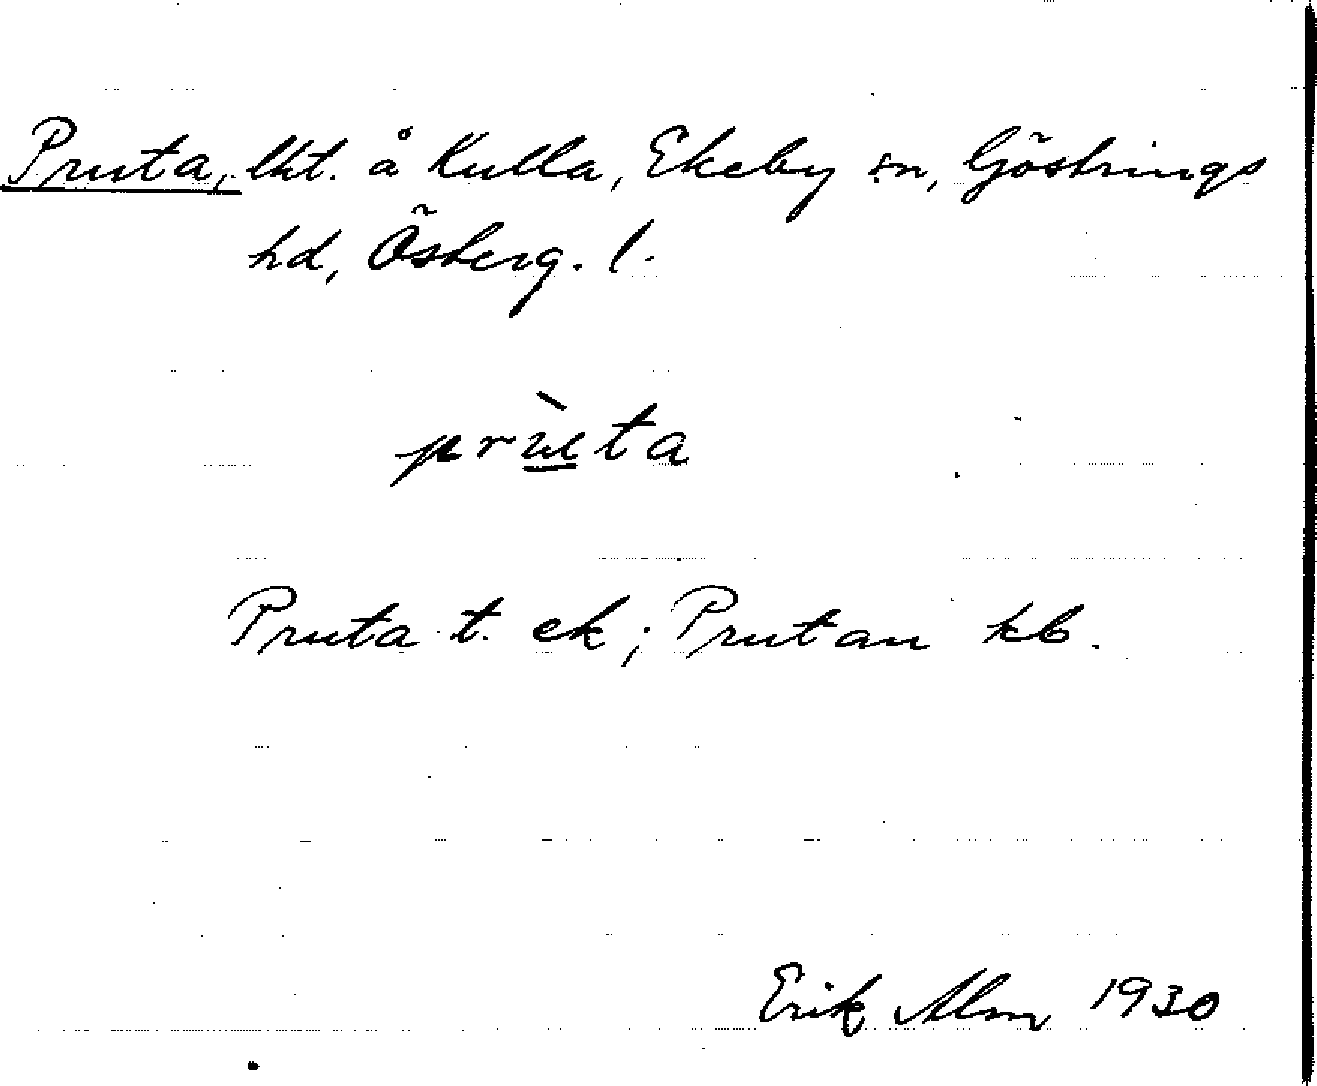 Pruta, lht. å Kulla, Ekeby sn, Göstrings
hd, Österg. l.
prùta
Pruta t. ek; Prutan kb.
Erik Alm 1930